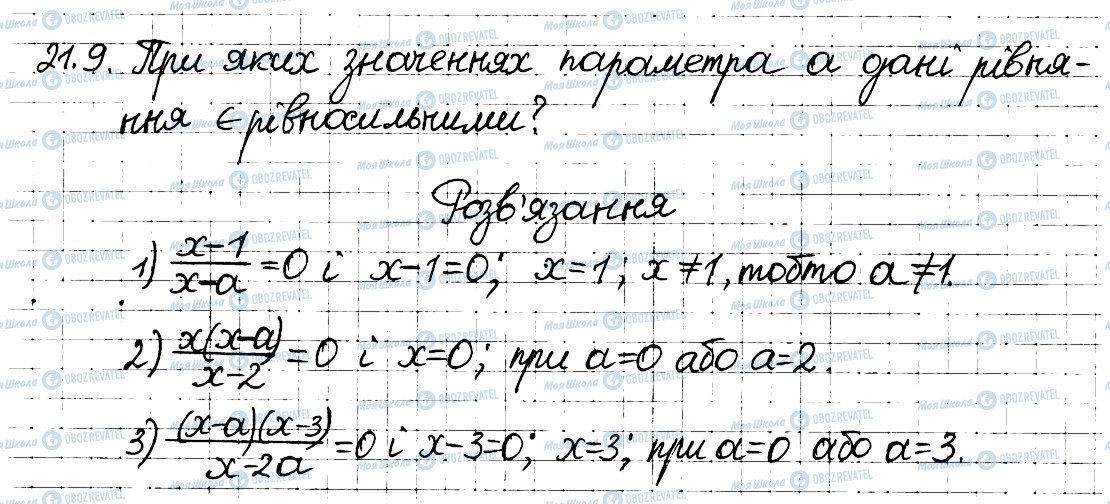 21.9. При яких значеннях параметра а дані рівня-
ння є рівносильними?
Розв'язання
1) \frac{x-1}{x-a} = 0 і x-1=0; x=1; x≠1, тобто a≠1.
2) \frac{x(x-a)}{x-2} = 0 і x=0; при a=0 або a=2.
3) \frac{(x-a)(x-3)}{x-2a} = 0 і x-3=0; x=3; при a=0 або a=3.